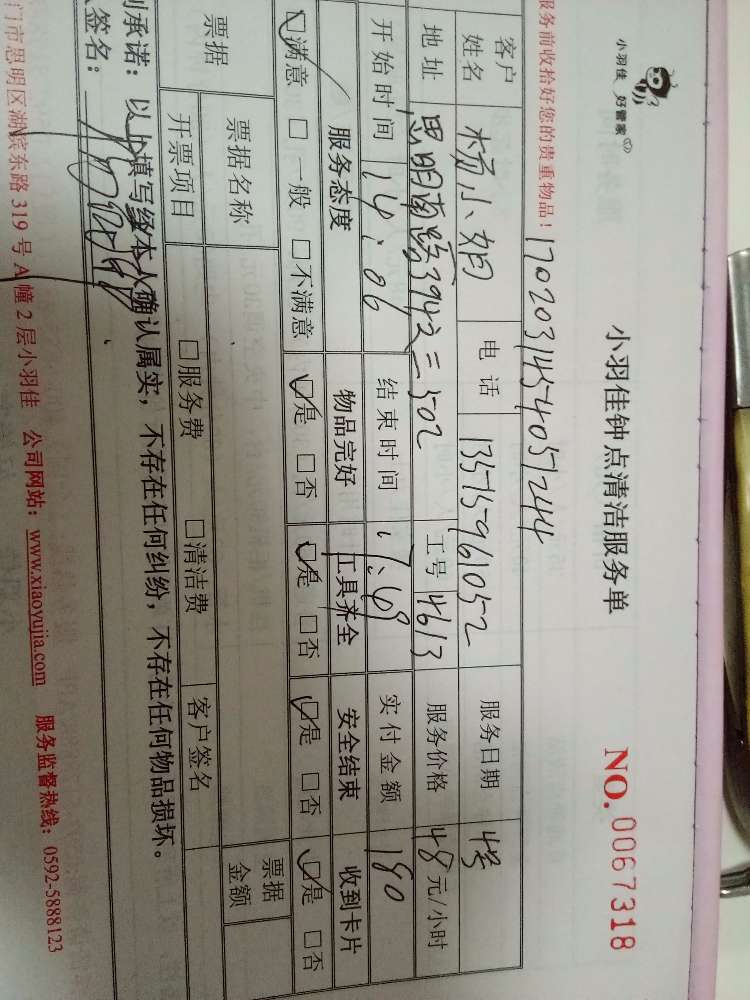 小羽佳 好管家
小羽佳钟点清洁服务单
NO. 0067318
服务前收拾好您的贵重物品！ 1702031454051244
客户姓名 杨小姐 电话 13515961052 服务日期 4号
地址 思明南路394之三502 工号 4613 服务价格 48元/小时
开始时间 14:06 结束时间 实付金额 180
服务态度 物品完好 工具齐全 安全结束 收到卡片
☑满意 □一般 □不满意 ☑是 □否 ☑是 □否 ☑是 □否 ☑是 □否
票据 票据名称 票据金额
开票项目 □服务费 □清洁费 客户签名
承诺：以上填写经本人确认属实，不存在任何纠纷，不存在任何物品损坏。
签名：
门市思明区湖滨东路319号A幢2层小羽佳 公司网站：www.xiaoyujia.com 服务监督热线：0592-5888123